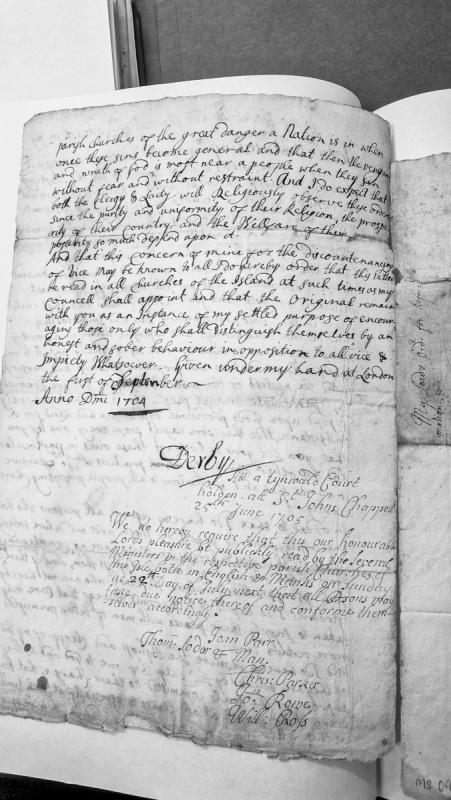 parish churches of the great danger a Nation is in when
once these sins become general and that then the vengeance
and wrath of God is most near a people when they sin
without fear and without restraint. And I do expect that
both the Clergy & Laity will Religiously observe these Orders
Since the purity and uniformity of their Religion, the prospe-
rity of their country, and the Wellfare of their
posterity so much depend upon it.
And that this concern of mine for the discountenancing
of Vice may be known to all I do hereby order that this Letter
be read in all churches of the Island at such times as my
Councell shall appoint and that the Original remain
with you as an Instance of my settled purpose of encour-
aging those only who shall distinguish themselves by an
honest and sober behaviour in opposition to all vice &
Impiety Whatsoever. Given under my hand at London
the first of September
Anno Dni 1704
Derby
At a Tynwald Court
holden att St Johns Chappell
25th June 1705
We do hereby require that this our honourable
Lords pleasure be publickly read by the several
Ministers in the respective parish Churches of
this Isle both in English & Manks on Sunday
ye 29th Day of July next that all Psons may
take due notice thereof and conforme them-
selves accordingly.
John Parr
Thom: Sodor & Man.
Chris: Parker
Jo: Rowe
Will: Ross
My Lords Order for
MS 09